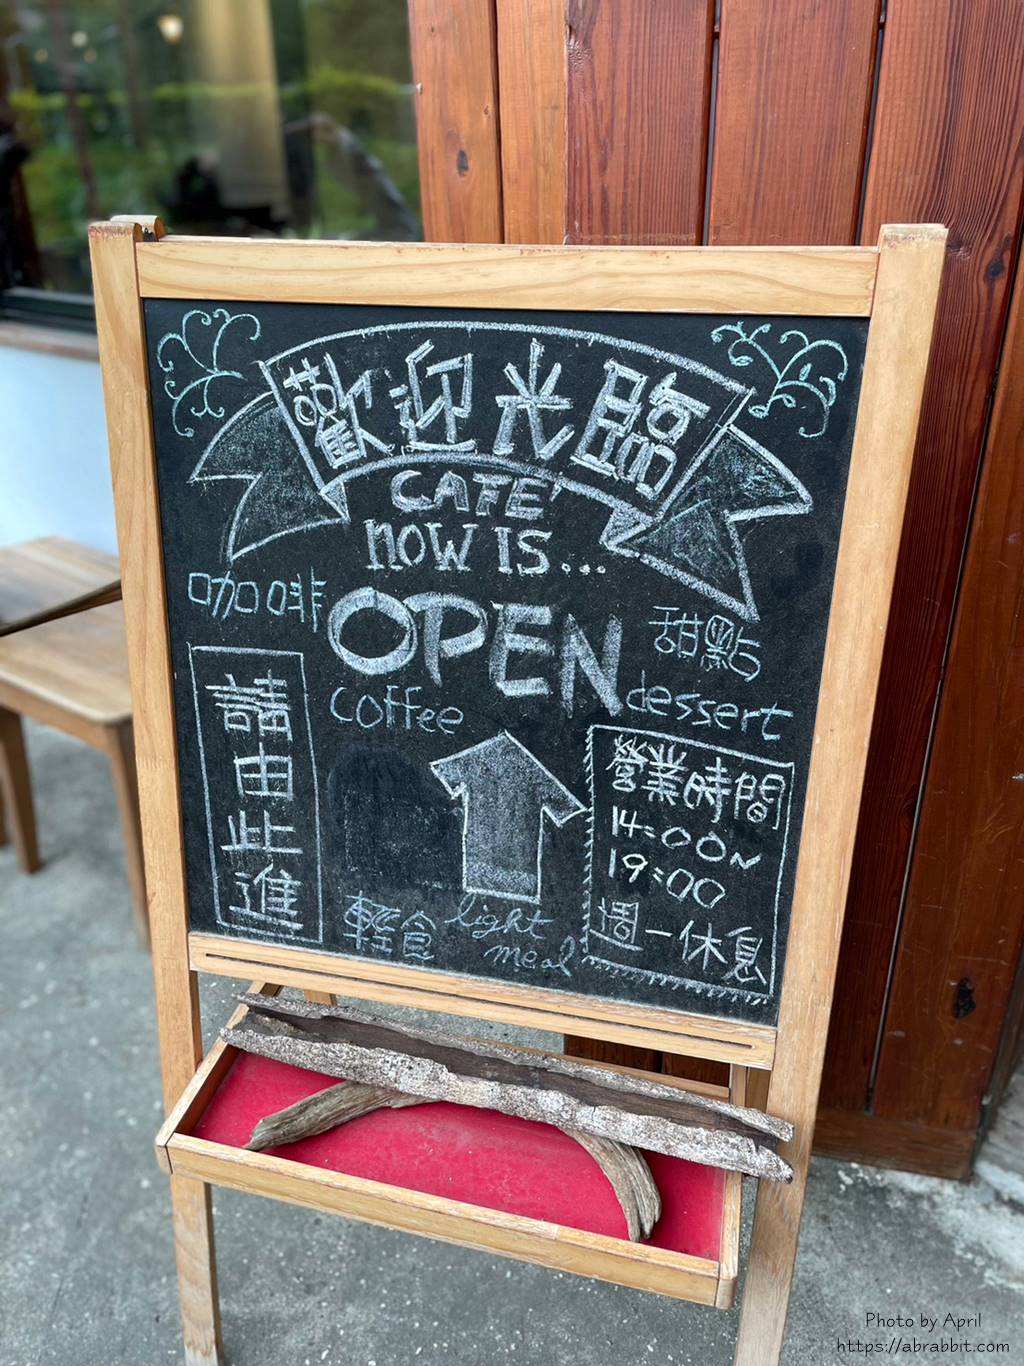 歡迎光臨
CAFE'
NOW IS...
咖啡
OPEN
甜點
coffee
dessert
請由此進
營業時間
14:00~
19:00
週一休息
輕食
light
meal
Photo by April
https://abrabbit.com